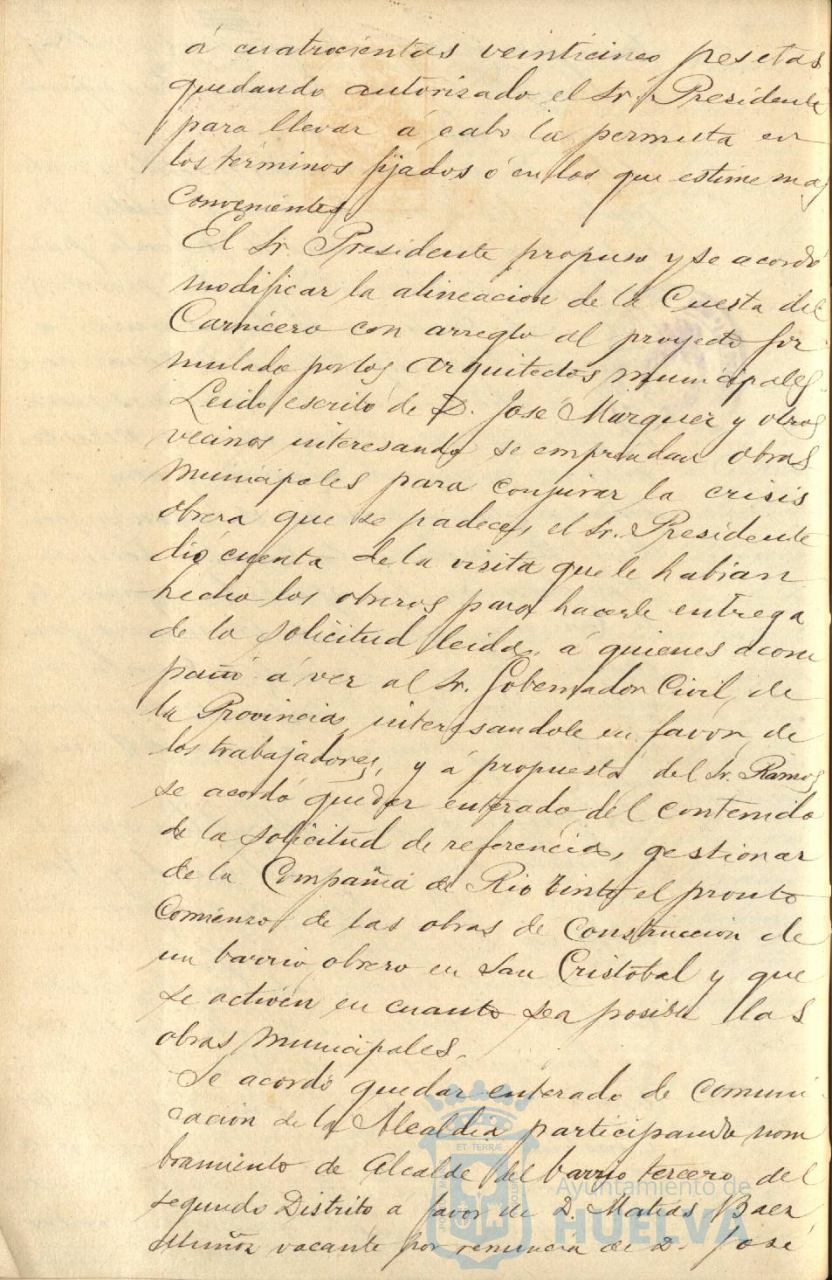 á cuatrocientas veinticinco pesetas
quedando autorizado el Sr. Presidente
para llevar á cabo la permuta en
los términos fijados ó en los que estime mas
convenientes.
El Sr. Presidente propuso y se acordó
modificar la alineacion de la Cuesta del
Carnicero con arreglo al proyecto for
mulado por los Arquitectos municipales.
Leido escrito de D. José Marquez y otros
vecinos interesando se emprendan obras
municipales para conjurar la crisis
obrera que se padece, el Sr. Presidente
dió cuenta de la visita que le habian
hecho los obreros para hacerle entrega
de la solicitud leida, á quienes acom
pañó á ver al Sr. Gobernador Civil de
la Provincia, interesandole en favor de
los trabajadores, y á propuesta del Sr. Ramos
se acordó quedar enterado del contenido
de la solicitud de referencia, gestionar
de la Compañia de Rio Tinto el pronto
comienzo de las obras de Construccion de
un barrio obrero en San Cristobal y que
se activen en cuanto sea posible las
obras municipales.
Se acordó quedar enterado de comuni
cación de la Alcaldia participando nom
bramiento de Alcalde del barrio tercero del
segundo Distrito a favor de D. Matias Baez
Muñoz vacante por renuncia de D. José
ET TERRÆ
Ayuntamiento de
HUELVA